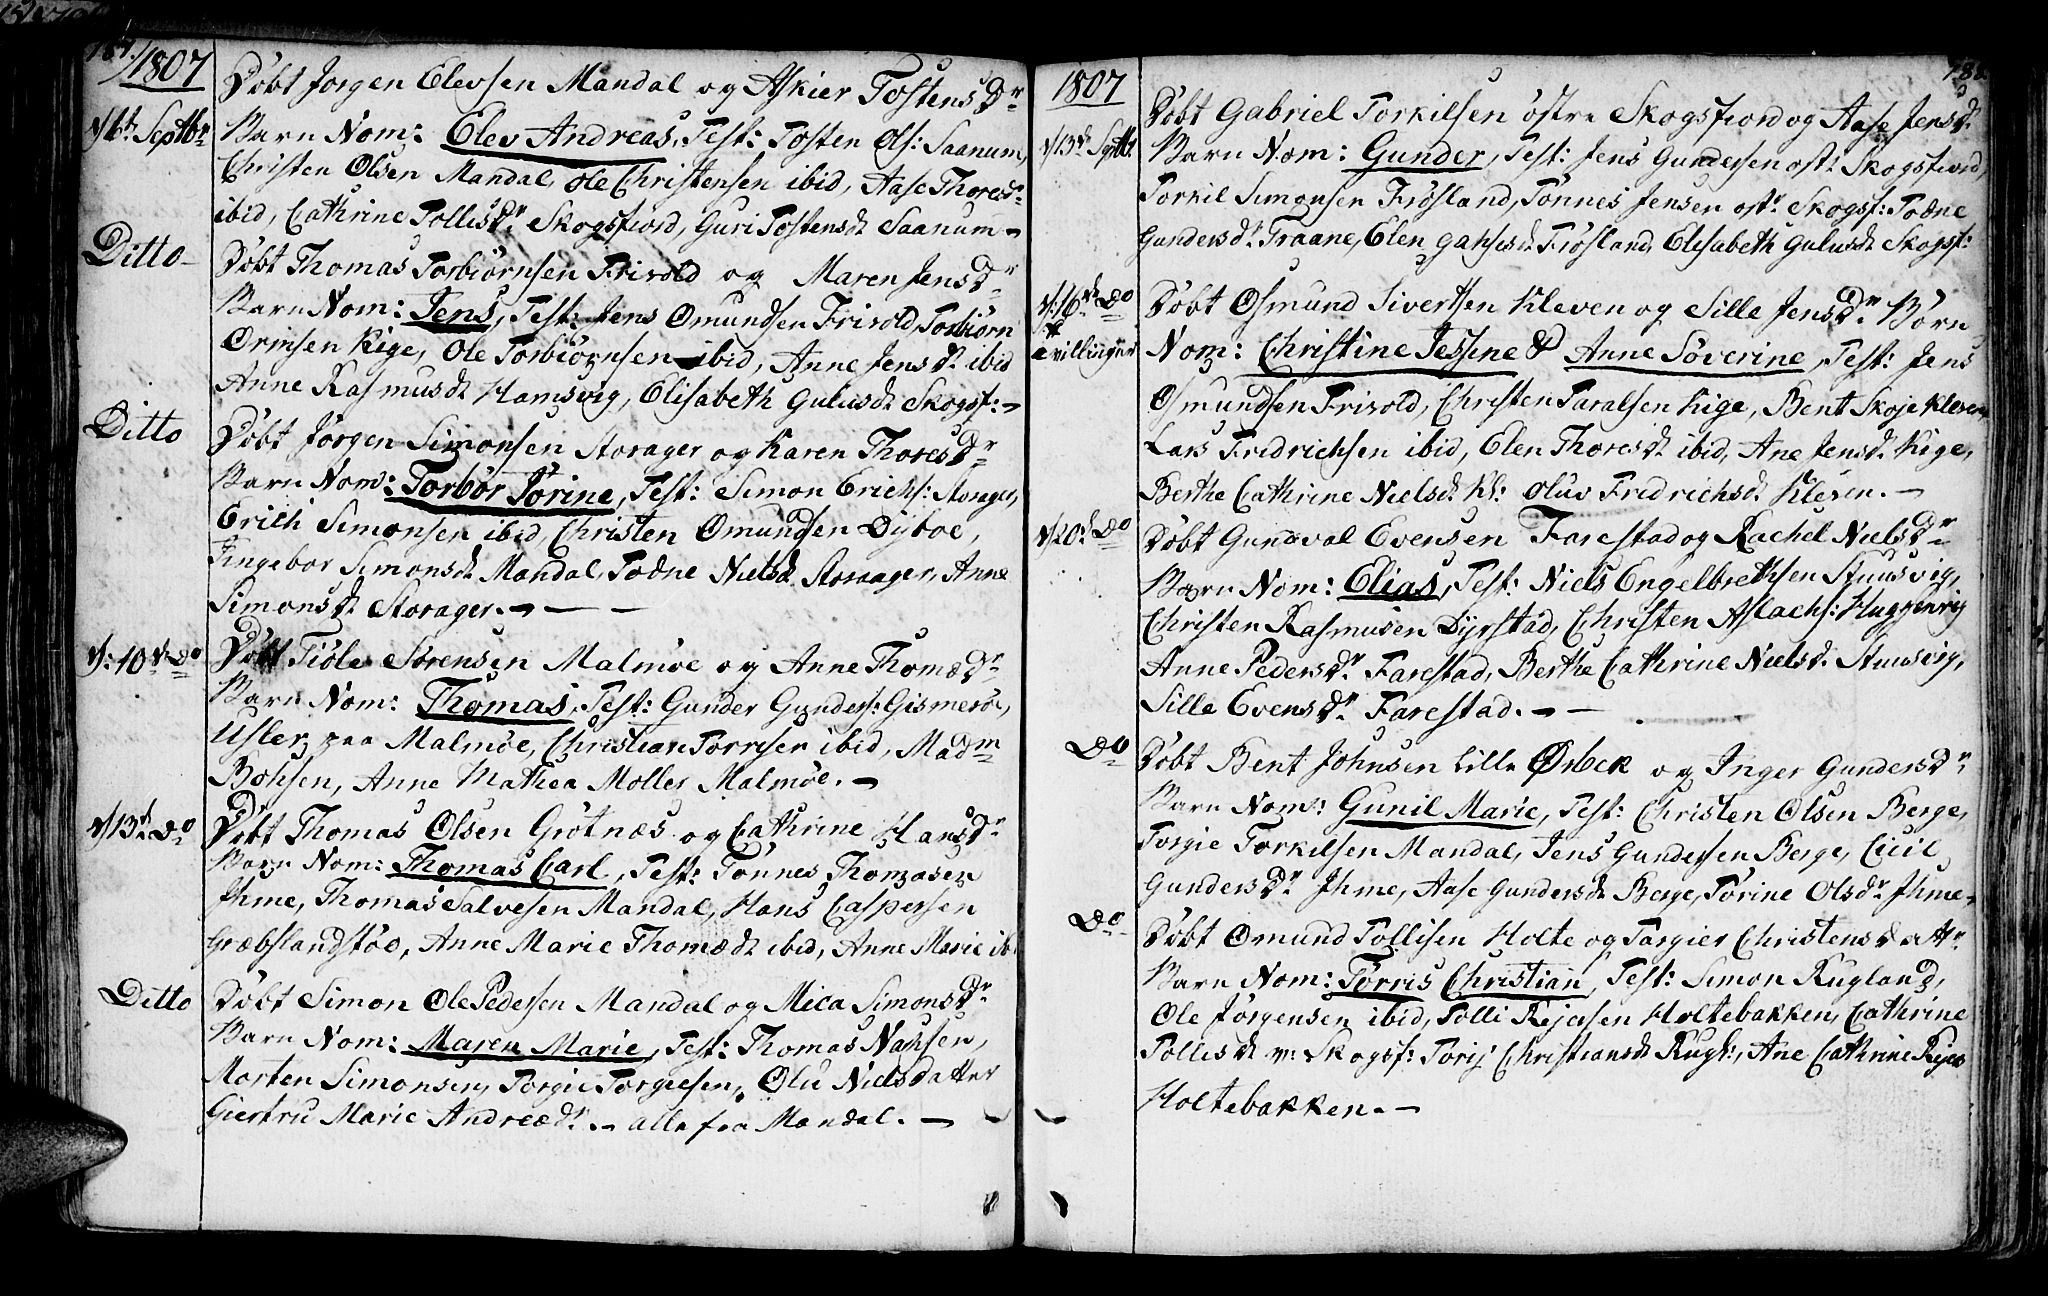 187.
1807
d/6t. Septbr
Döbt Jorgen Elevsen Mandal og Askier TostensDr
Barn Nom: Elev Andreas, Test: Tosten Ols: Saanum,
Christen Olsen Mandal, Ole Christensen ibid, Aase Thoresdr
ibid, Cathrine TollisDr Skogsfiord, Guri Tostensd. Saanum
Ditto
Döbt Thomas Torbiörnsen Frisold og Maren JensDr
Barn Nom: Jens, Test: Jens Omundsen Frisold, Torbiörn
Ormsen Kige, Ole Torbiörnsen ibid, Anne Jensd. ibid
Anne Rasmusd. Hamsvig, Elisabeth Gulusd. Skogsf:
Ditto
Döbt Jörgen Simonsen Storager og Karen ThoresDr
Barn Nom: Torbor Jörine, Test: Simon Erichs: Storager,
Erich Simonsen ibid, Christen Omundsen Dyboe,
Jngebor Simonsd. Mandal, Todne Nielsd. Storager, Anne
Simonsd. Storager.
d: 10d. Do
Döbt Tiöle Sörensen Malmöe og Anne ThomæDr
Barn Nom: Thomas, Test: Gunder Gunders: Gismeröe,
Usler paa Malmöe, Christian Torrisen ibid, Madm
Bohsen, Anne Mathea Moller Malmöe.
d/13d. Do
Döbt Thomas Olsen Grötnæs og Cathrine HansDr
Barn Nom: Thomas Carl, Test: Tönnes Thomasen
Jhme, Thomas Salvesen Mandal, Hans Caspersen
Græbslandstöe, Anne Marie Thomæd. ibid, Anne Marie ib
Ditto
Döbt Simon Ole Pedersen Mandal og Mica SimonsDr
Barn Nom: Maren Marie, Test: Thomas Nahsen,
Morten Simonsen, Torgie Torgiesen, Olu Nielsdatter
Giertru Marie Andreædr. alle fra Mandal.
1807
188
d/13d. Septbr.
Döbt Gabriel Torkilsen östre Skogsfiord og Aase Jensd.
Barn Nom: Gunder, Test: Jens Gundersen öst: Skogsfiord,
Torkil Simonsen Frösland, Tönnes Jensen östr. Skogsf: Todne
Gundersdr Traane, Elen Gahsesd. Frösland, Elisabeth Gulusd. Skogsf:
d:16d. Do
tvillinger
Döbt Osmund Sivertsen Kleven og Sille JensDr Börn
Nom: Christine Jessine & Anne Söverine, Test: Jens
Osmundsen Frisold, Christen Taralsen Kige, Bent Skoje Kleven,
Lars Fridrichsen ibid, Elen Thoresd. ibid, Ane Jensd. Kige,
Berthe Cathrine Nielsd. Kl: Oluv Fridrichsd. Kleven.
d/20d. Do
Döbt Gundval Evensen Farestad og Rachel NielsDr
Barn Nom: Elias, Test: Niels Engelbrethsen Stuusvig,
Christen Rasmusen Dyrstad, Christen Aslachs: Huggenvig
Anne Pedersdr. Farestad, Berthe Cathrine Nielsd. Stuusvig,
Sille EvensDr. Farestad.
Do
Döbt Bent Johnsen lille Ørbek og Inger GundersDr
Barn Nom: Gunil Marie, Test: Christen Olsen Berge,
Torgie Torkilsen Mandal, Jens Gundersen Berge, Cicil
GundersDr Jhme, Aase Gundersd. Berge, Törine Olsdr. Jhme
Do
Döbt Omund Tollisen Holte og Targier Christensdattr
Barn Nom: Törris Christian, Test: Simon Rugland,
Ole Jörgensen ibid, Tolli Rejersen Holtebakken, Cathrine
Tollisd. v: Skogsf: Torij Christiansd. Rugl:, Ane Cathrine
Holtebakken.